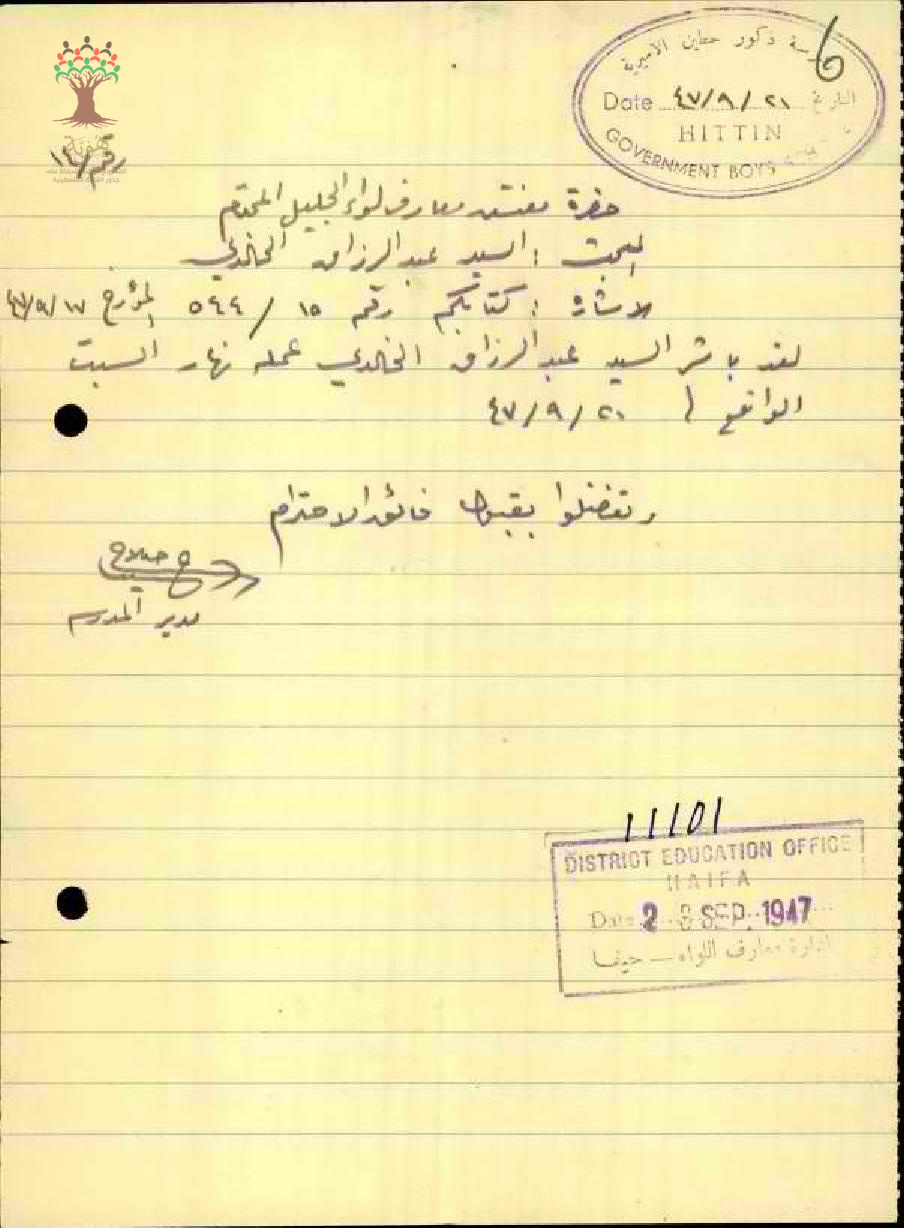 6
مدرسة ذكور حطين الاميرية
Date ٤٧/٩/٢١ التاريخ
HITTIN
GOVERNMENT BOYS SCHOOL
هوية
رقم /١٤
حضرة مفتش معارف لواء الجليل المحترم
البحث : السيد عبد الرزاق الخالدي
الاشارة : كتابكم رقم ١٥ / ٥٤٤ المؤرخ ٤٧/٩/١٧
لقد باشر السيد عبد الرزاق الخالدي عمله نهار السبت
الواقع في ٤٧/٩/٢٠
وتفضلوا بقبول فائق الاحترام
مدير المدرسة
11101
DISTRICT EDUCATION OFFICE
HAIFA
Date 2 3 SEP. 1947
ادارة معارف اللواء — حيفا